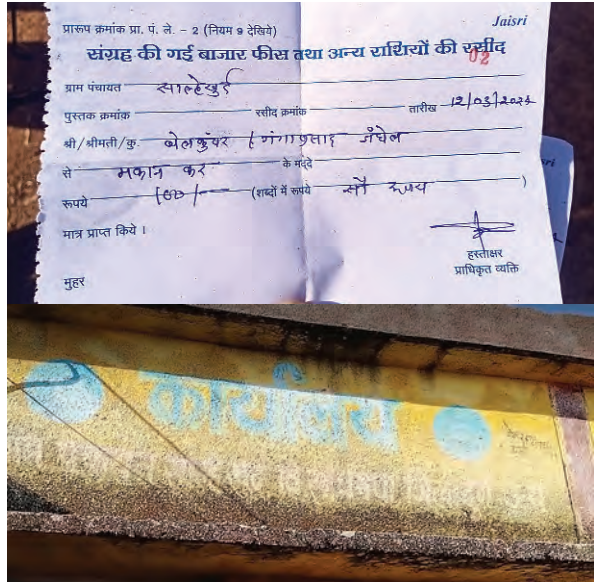 Jaisri
प्रारूप क्रमांक प्रा. पं. ले. - 2 (नियम 9 देखिये)
संग्रह की गई बाजार फीस तथा अन्य राशियों की रसीद
02
ग्राम पंचायत साल्हेखुर्द
पुस्तक क्रमांक रसीद क्रमांक तारीख 12/03/2024
श्री/श्रीमती/कु. बेलकुंवर / गंगाप्रसाद जंघेल
से मकान कर के मद्दे
रूपये 100/- (शब्दों में रूपये सौ रूपय )
मात्र प्राप्त किये ।
हस्ताक्षर
प्राधिकृत व्यक्ति
मुहर
कार्यालय